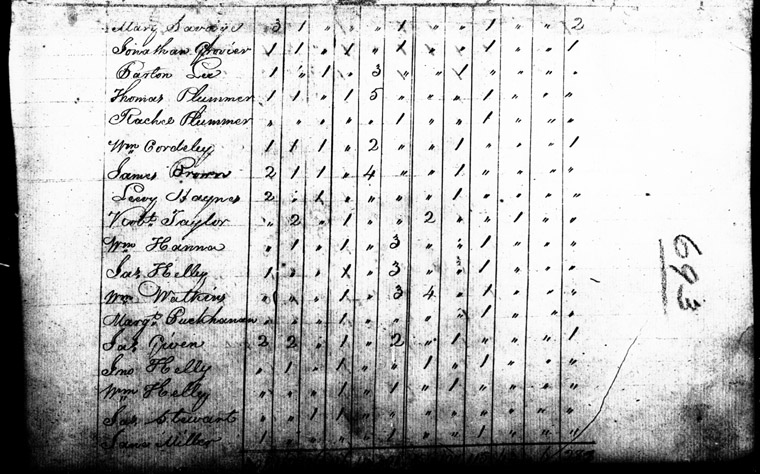 Mary Savage 3 1 " " " 1 " " 1 " " 2
Jonathan Grovier 1 1 " 1 " 1 " " 1 " " 1
Barton Lee 1 " 1 " 3 " " 1 " " " "
Thomas Plummer 1 1 " 1 5 " " " 1 " " "
Rachel Plummer " " " " " 1 " " 1 " " "
Wm Cordeley 1 1 1 " 2 " " 1 " " " 1
James Brown 2 1 1 " 4 " " 1 " " " "
Leevy Haynes 2 " 1 " " " " 1 " " " "
Robt. Taylor " 2 " 1 " " 2 " " 1 " "
Wm Hanna " 1 " 1 " 3 " " 1 " " "
Jas Helly 1 " " 1 " 3 " " 1 " " "
Wm Watkins " " " 1 " 3 4 " 1 " " "
Margt. Buckhanan " " " 1 " " " " 1 " " "
Jas Gwen 2 2 " 1 " 2 " 1 " " " 1
Jno Helly " 1 " 1 " " 1 " 1 " "
Wm Helly " " " 1 " 1 " 1 " " "
Jas Stewart " " 1 1 " " " " " " "
Miller 1
693